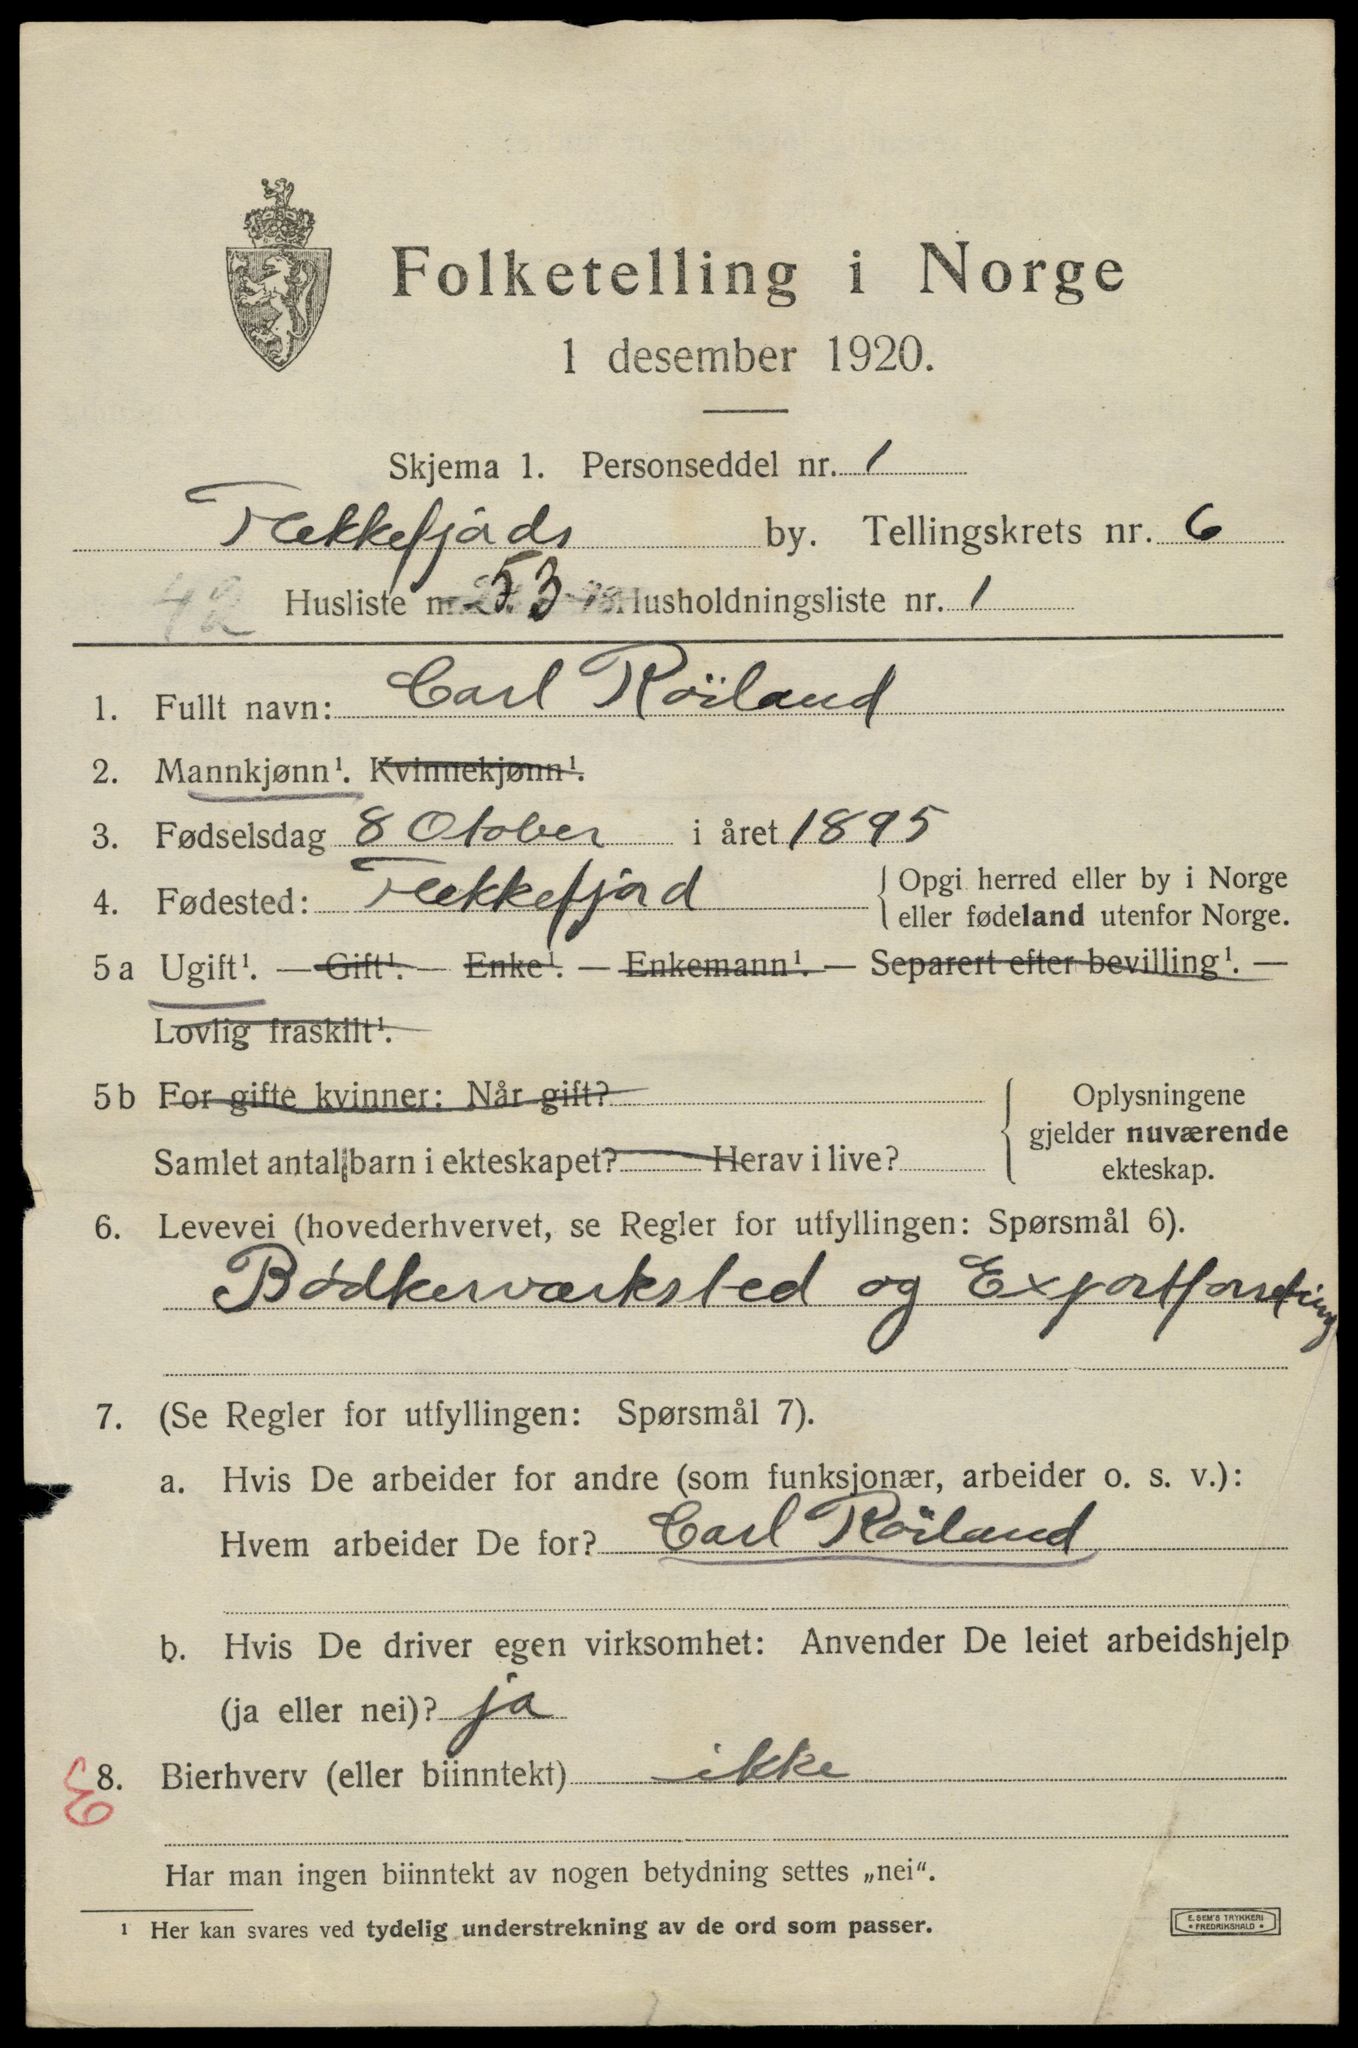 Folketelling i Norge
1 desember 1920.
Skjema 1. Personseddel nr. 1
Flekkefjords by. Tellingskrets nr. 6
42 Husliste nr. 53 Husholdningsliste nr. 1
1. Fullt navn: Carl Röiland
2. Mannkjønn¹. Kvinnekjønn¹.
3. Fødselsdag 8 Otober i året 1895
4. Fødested: Flekkefjord { Opgi herred eller by i Norge
eller fødeland utenfor Norge.
5 a Ugift¹. — Gift¹. — Enke¹. — Enkemann¹. — Separert efter bevilling¹. —
Lovlig fraskilt¹.
5 b For gifte kvinner: Når gift?
Samlet antal barn i ekteskapet? Herav i live?
Oplysningene
gjelder nuværende
ekteskap.
6. Levevei (hovederhvervet, se Regler for utfyllingen: Spørsmål 6).
Bødkerværksted og Exportforretning
7. (Se Regler for utfyllingen: Spørsmål 7).
a. Hvis De arbeider for andre (som funksjonær, arbeider o. s. v.):
Hvem arbeider De for? Carl Röiland
b. Hvis De driver egen virksomhet: Anvender De leiet arbeidshjelp
(ja eller nei)? ja
8. Bierhverv (eller biinntekt) ikke
Har man ingen biinntekt av nogen betydning settes „nei".
¹ Her kan svares ved tydelig understrekning av de ord som passer.
E. SEM'S TRYKKERI
FREDRIKSHALD